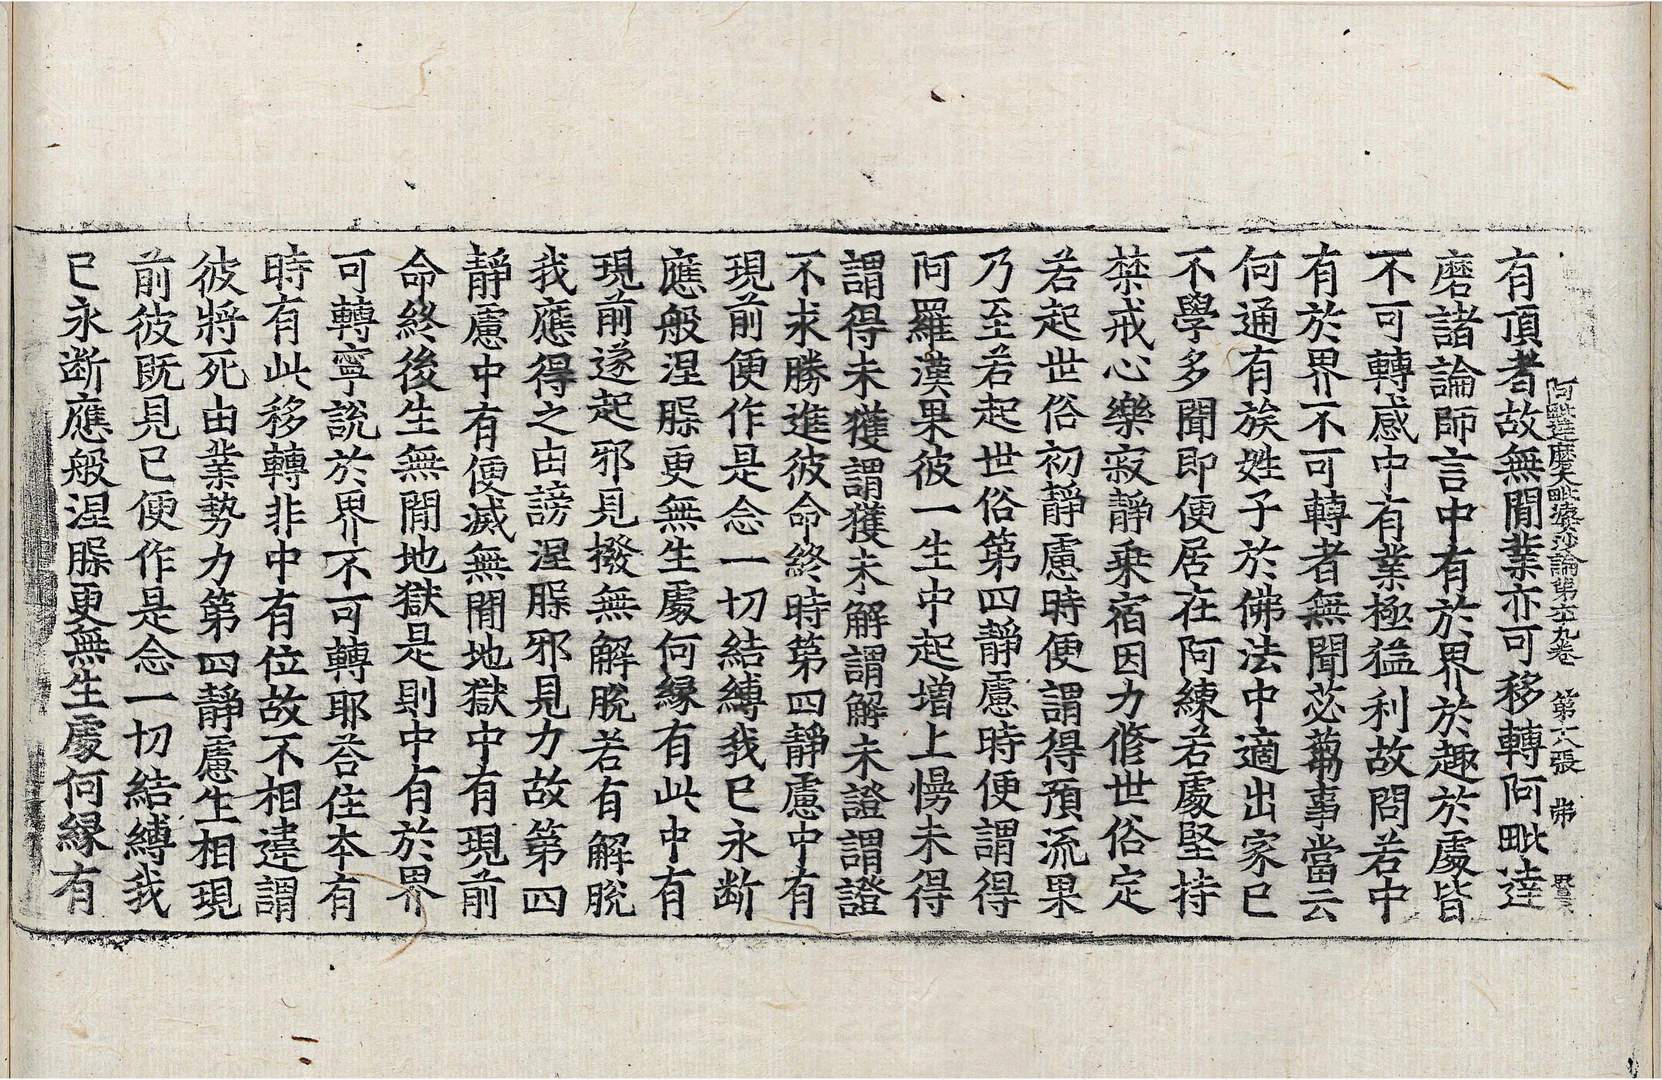 阿毗達磨大毗婆沙論第六十九卷 第十八張 弗
有頂者故無間業亦可移轉阿毗達
磨諸論師言中有於界於趣於處皆
不可轉感中有業極猛利故問若中
有於界不可轉者無聞苾蒭事當云
何通有族姓子於佛法中適出家已
不學多聞即便居在阿練若處堅持
禁戒心樂寂靜乗宿因力修世俗定
若起世俗初靜慮時便謂得預流果
乃至若起世俗第四靜慮時便謂得
阿羅漢果彼一生中起增上慢未得
謂得未獲謂獲未解謂解未證謂證
不求勝進彼命終時第四靜慮中有
現前便作是念一切結縛我已永断
應般涅槃更無生處何縁有此中有
現前遂起邪見撥無解脫若有解脫
我應得之由謗涅槃邪見力故第四
靜慮中有便滅無間地獄中有現前
命終後生無間地獄是則中有於界
可轉寧說於界不可轉耶荅住本有
時有此移轉非中有位故不相違謂
彼將死由業勢力第四靜慮生相現
前彼既見已便作是念一切結縛我
已永断應般涅槃更無生處何縁有